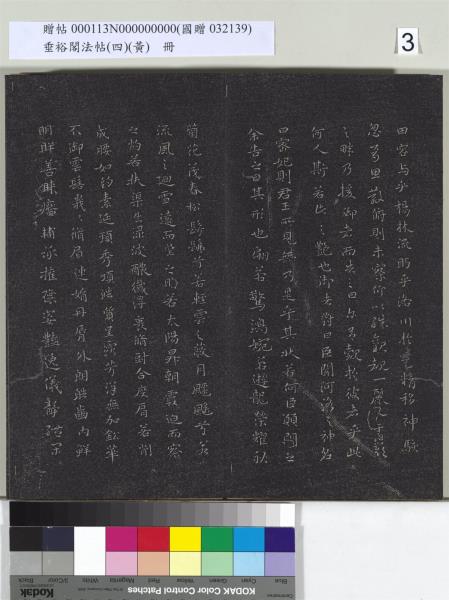 贈帖 000113N000000000(國贈 032139)
垂裕閣法帖(四)(黃) 冊
3
田容与乎楊林流眄乎洛川於 精移神駭
忽焉思散俯則未察仰以殊觀覩一麗人于巖
之畔乃援御者而告之曰尓有覿於彼者乎此
何人斯若此之艷也御者對曰臣聞河洛之神名
曰宓妃則君王所見無乃是乎其狀若何臣願聞之
余告之曰其形也翩若驚鴻婉若遊龍榮耀秋
菊花茂春松髣髴兮若輕雲之蔽月飄颻兮若
流風之迴雪遠而望之皎若太陽昇朝霞迫而察
之灼若 渠出淥波醲纖得衷脩短合度肩若削
成腰如約素延頸秀項皓質呈露芳澤無加鉛華
不御雲髻峩峩脩眉連娟丹脣外朗皓齒內鮮
明眸善睞靨輔承權瓌姿艷逸儀靜體閑
Kodak
KODAK Color Control Patches
Blue
Cyan
Green
Yellow
Red
Magenta
White
3/Color
Black